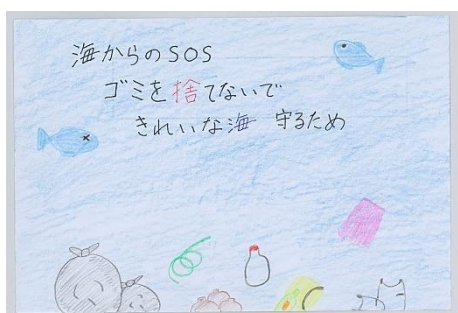 海からのSOS
ゴミを捨てないで
きれいな海 守るため